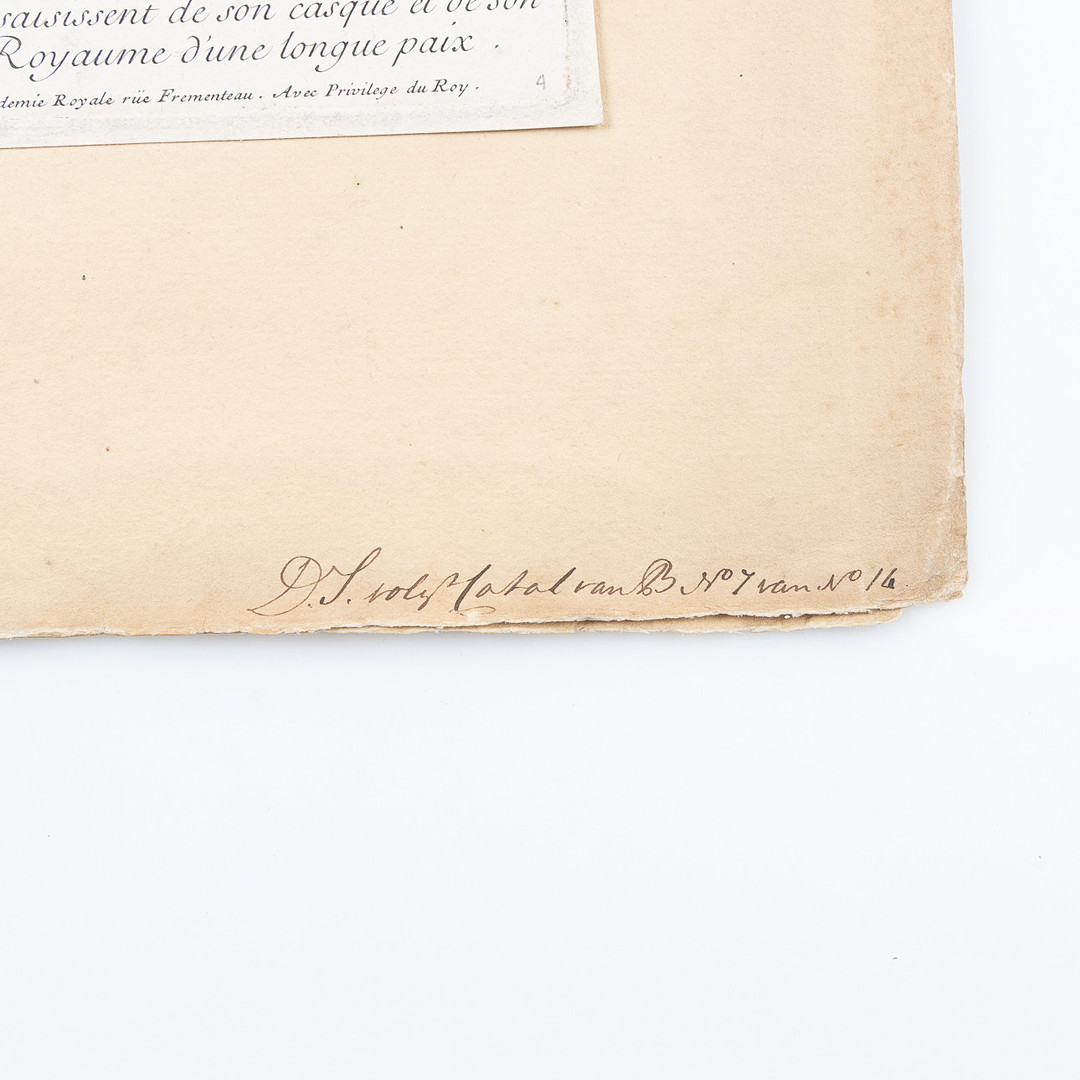 saisissent de son casque et de son
Royaume d'une longue paix .
demie Royale rüe Frementeau . Avec Privilege du Roy .
4
D.J. Catal van B No 7 van No 16